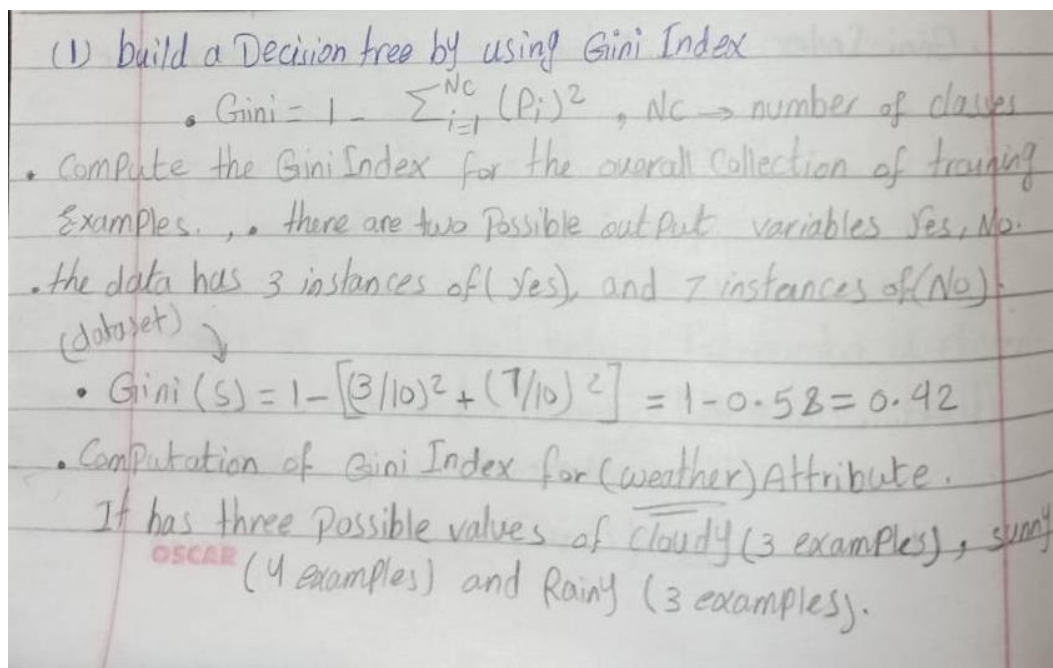 (1) build a Decision tree by using Gini Index
• Gini = 1 - Σ_{i=1}^{NC} (Pi)², NC → number of classes
• Compute the Gini Index for the overall Collection of training
Examples., • there are two Possible output variables Yes, No.
• the data has 3 instances of (Yes), and 7 instances of (No)
(dataset)
• Gini (S) = 1 - [(3/10)² + (7/10)²] = 1 - 0.58 = 0.42
• Computation of Gini Index for (weather) Attribute.
It has three Possible values of Cloudy (3 examples), sunny
OSCAR (4 examples) and Rainy (3 examples).